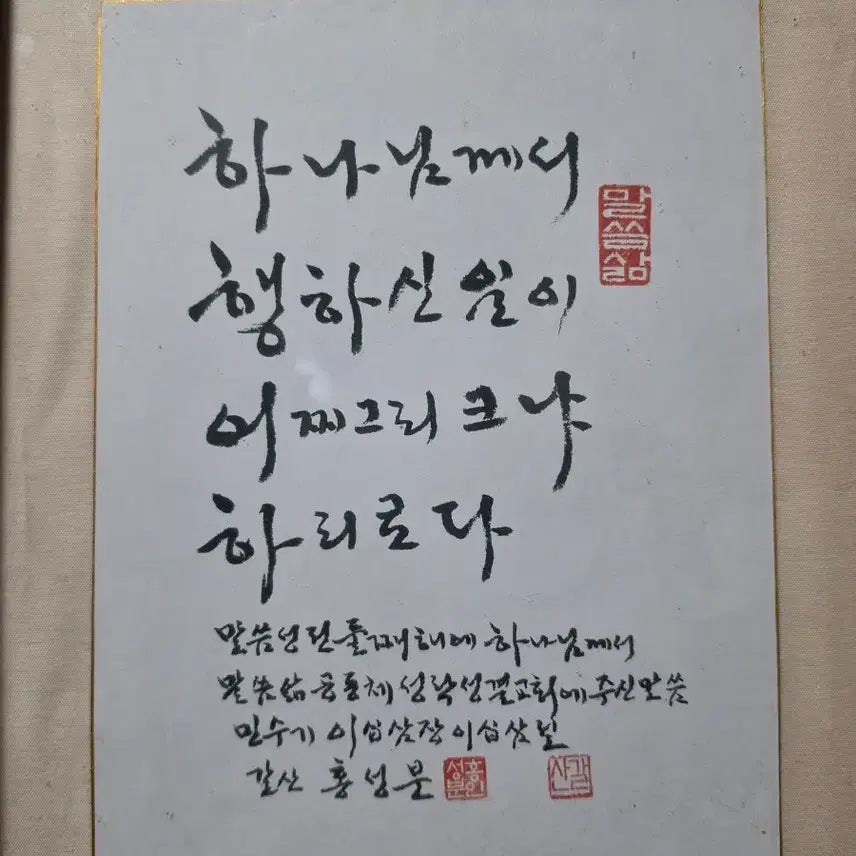 하나님께서
말씀삶
행하신 일이
어찌 그리 크냐
하리로다
말씀성전 둘째 해에 하나님께서
말씀삶 공동체 성락성결교회에 주신 말씀
민수기 이십삼장 이십삼절
갈산 홍성문
갈산